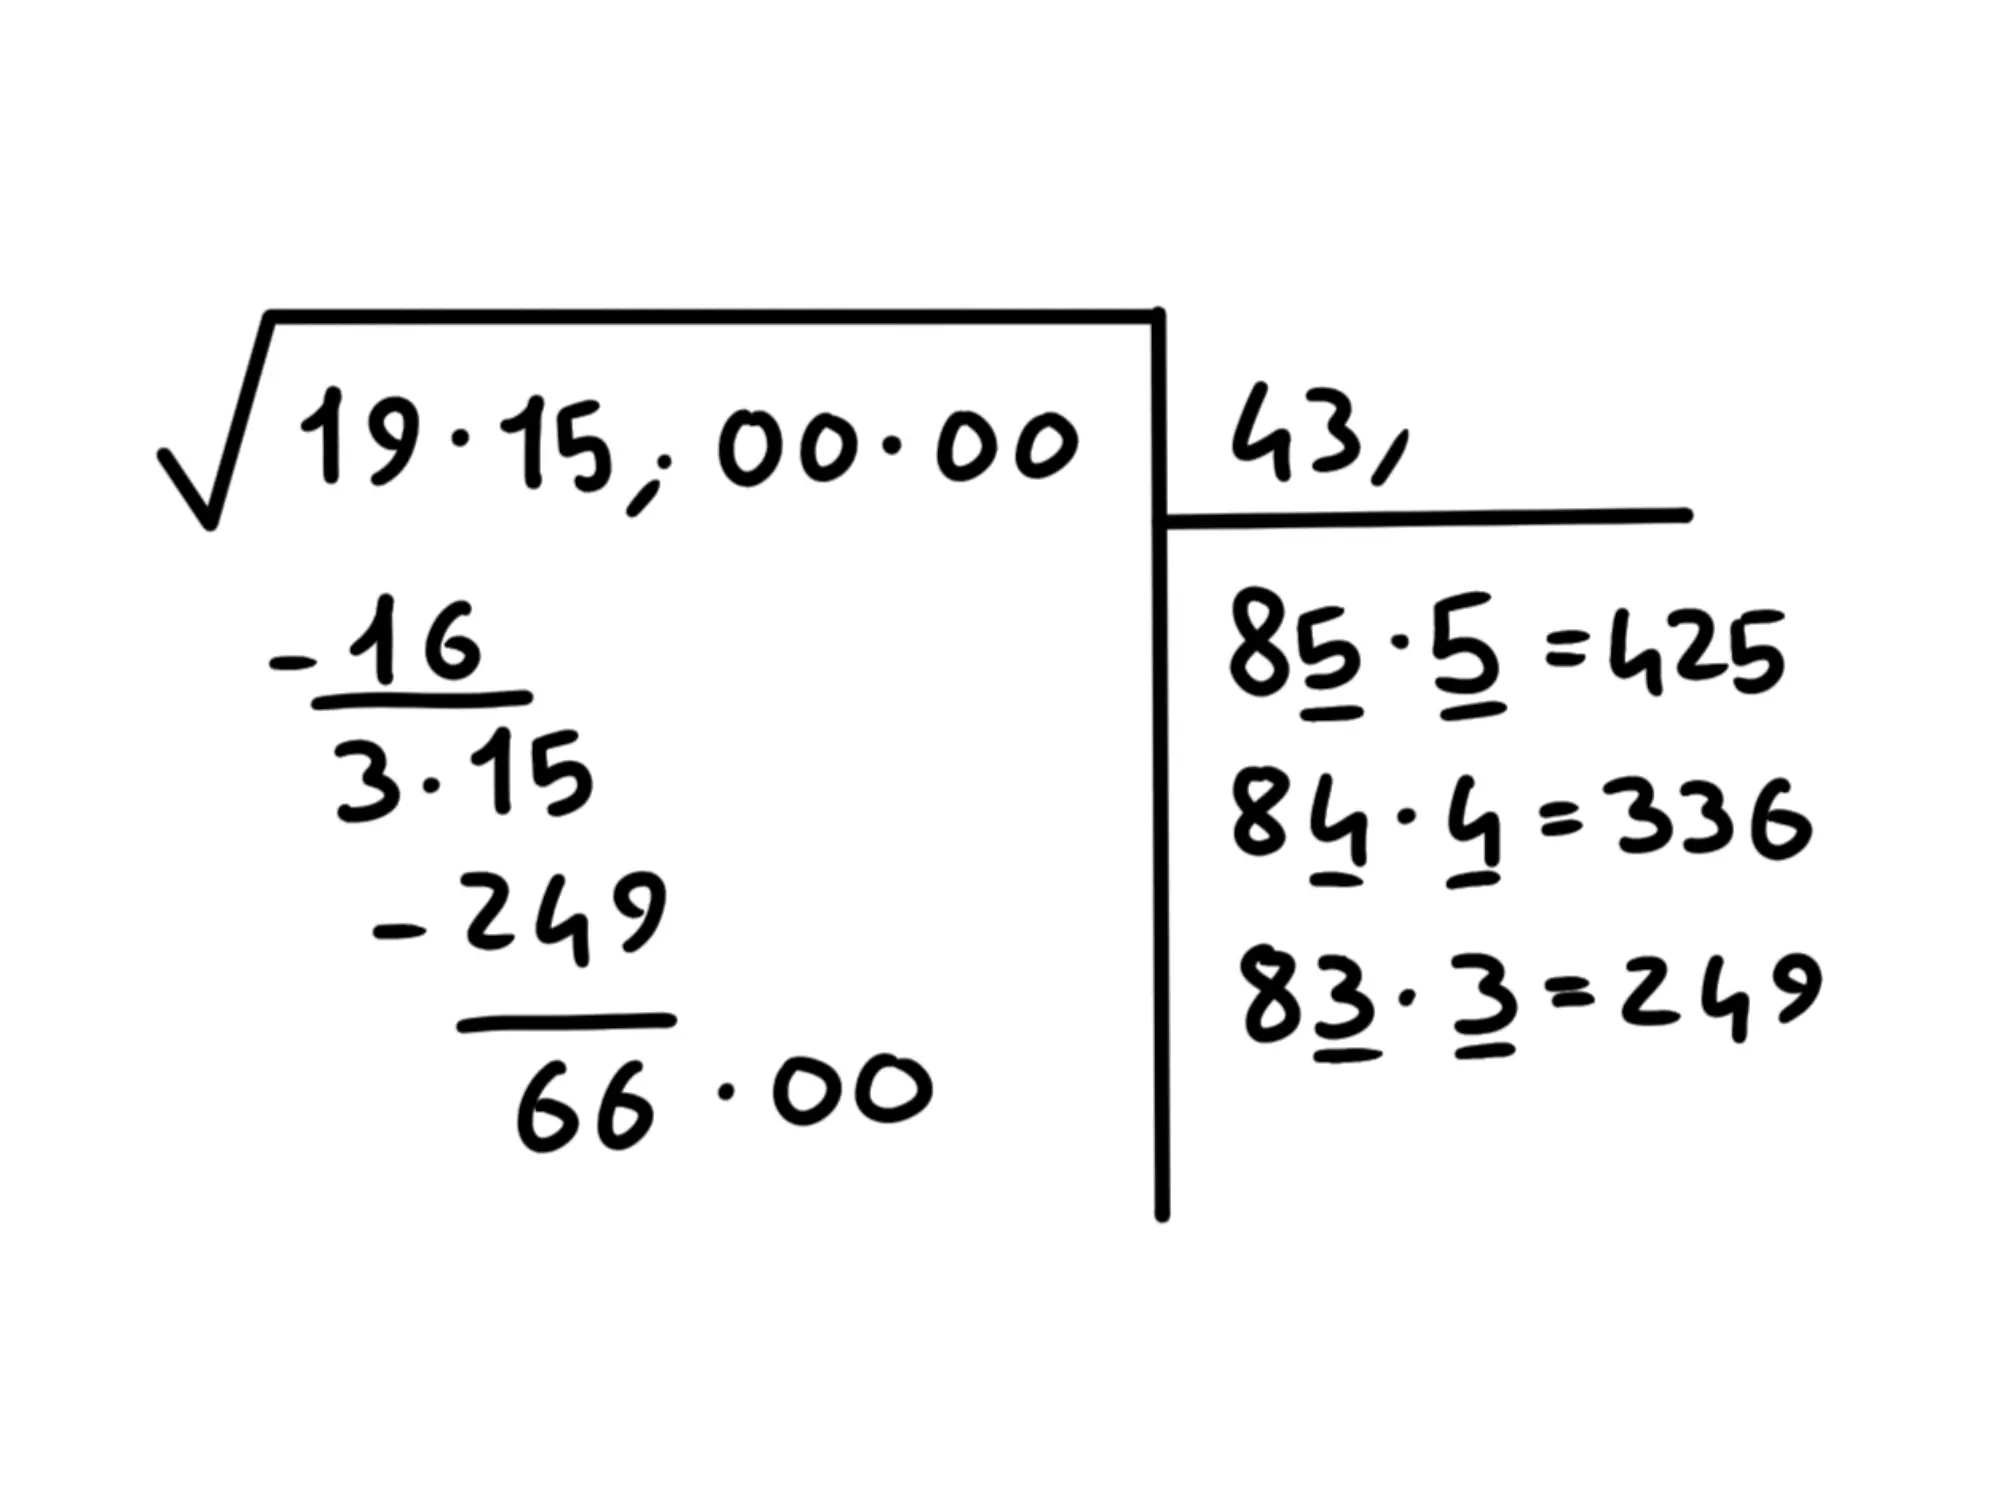 √19·15,·00·00
43,
-16
3·15
-249
66·00
85·5=425
84·4=336
83·3=249